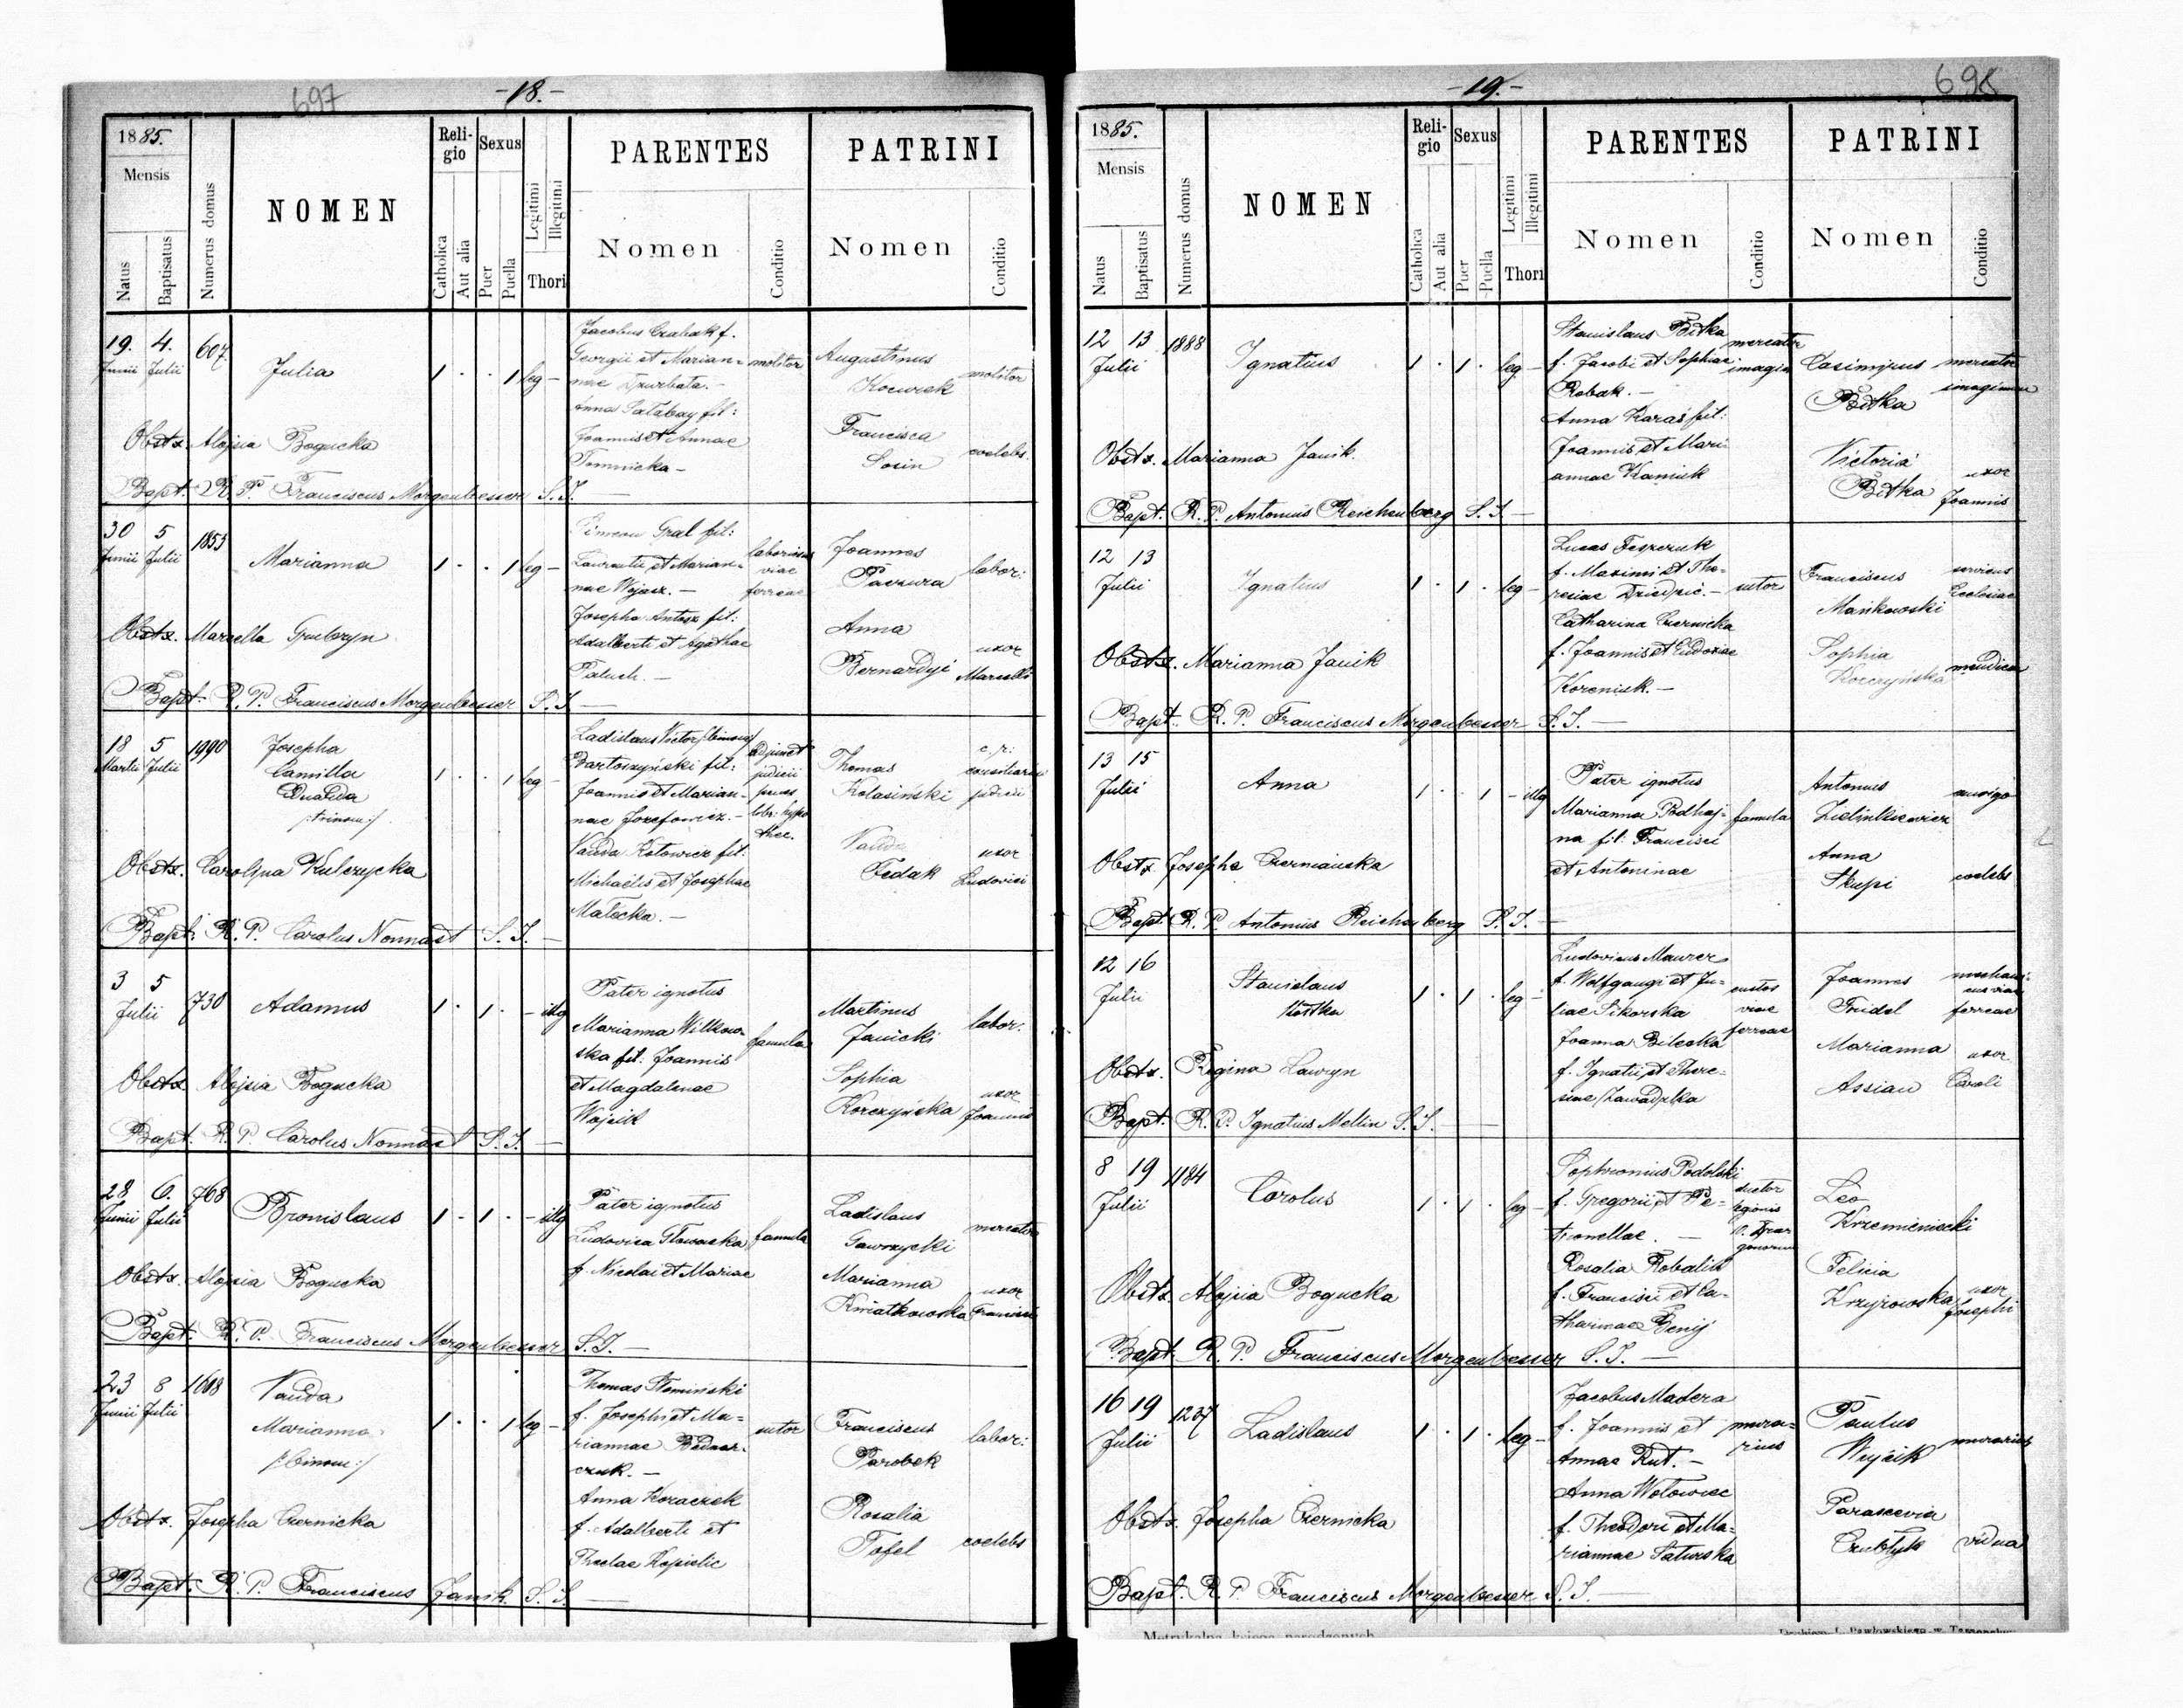 697
-18.-
1885.
Mensis
Natus
Baptisatus
Numerus domus
NOMEN
Reli-
gio
Catholica
Aut alia
Sexus
Puer
Puella
Legitimi
Illegitimi
Thori
PARENTES
Nomen
Conditio
PATRINI
Nomen
Conditio
19. 4. 607
Junii Julii
Julia
1 · · 1 leg -
Jacobus f.
Georgii et Marian-
nae
Anna fil:
Joannis et Annae
Tomnicka -
molitor
Augustinus
Kocurek
molitor
Francisca
Sosin
coelebs.
Obstx. Alojsia Bogucka
Bapt. R. P. Franciscus Morgenbesser S. J. —
30 5 1853
Junii Julii
Marianna
1 · · 1 leg -
Simeon Gral fil:
Laurentii et Marian-
nae Wojasz. -
Josepha Antosz fil:
Adalberti et Agathae
Paluch. -
viae
ferreae
Joannes
labor:
Anna
Bernardyi
uxor
Marcelli
Obstx. Marcella Grubzyn
Bapt. R. P. Franciscus Morgenbesser S. J. —
18 5 1990
Martii Julii
Josepha
Camilla
/:trinom:/
1 · · 1 leg -
Ladislaus Victor /:binom:/
Bartoszyński fil:
Joannis et Marian-
nae Jozefowicz. -
Vanda Kotowicz fil:
Michaelis et Josephae
Matecka. -
adjunct
judicii
penes
libr: hypo
thec.
Thomas
Kolasiński
c. r:
consiliarius
judicii
Vanda
Fedak
uxor
Ludovici
Obstx. Carolina Kulczycka
Bapt. R. P. Carolus Nonnast S. J. —
3 5
Julii 730
Adamus
1 · 1 · - illg
Pater ignotus
Marianna Witkow-
ska fil: Joannis
et Magdalenae
Wojcik
famula
Martinus
Janicki
labor:
Sophia
Korczyńska
uxor
Joannis
Obstx Alojsia Bogucka
Bapt. R. P. Carolus Nonnast S. J. —
28 6. 768
Junii Julii
Bronislaus
1 · 1 · - illg
Pater ignotus
Ludovica Słowacka
f. Nicolai et Mariae
famula
Ladislaus
Gawrzycki
mercator
Marianna
Kwiatkowska
uxor
Francisci
Obstx. Alojsia Bogucka
Bapt. R. P. Franciscus Morgenbesser S. J. —
23 8 1608
Junii Julii
Vanda
Marianna
/:binom:/
1 · · 1 leg -
Thomas Słomiński
f. Josephi et Ma-
riannae Bednar-
czuk. -
Anna Koraczek
f. Adalberti et
Theclae Kopielic
sutor
Franciscus
Parobek
labor:
Rosalia
Tofel
coelebs
Obstx. Josepha Czernicka
Bapt. R. P. Franciscus Janik S. J. —
698
-19.-
1885.
Mensis
Natus
Baptisatus
Numerus domus
NOMEN
Reli-
gio
Catholica
Aut alia
Sexus
Puer
Puella
Legitimi
Illegitimi
Thori
PARENTES
Nomen
Conditio
PATRINI
Nomen
Conditio
12 13 1888
Julii
Ignatius
1 · 1 · leg -
Stanislaus Bitka
f. Jacobi et Sophiae
Robak. -
Anna Karaś fil:
Joannis et Mari-
annae Kaniuk
mercator
imagin
Casimirus
Bitka
mercator
imaginum
Victoria
Bitka
uxor
Joannis
Obstx. Marianna Janik.
Bapt. R. P. Antonius Reichenberg S. J. —
12 13
Julii
Ignatius
1 · 1 · leg -
Lucas Feszczuk
f. Maximi et The-
resiae Dziedzic. -
Catharina Czernicka
f. Joannis et Eudoxiae
Koreniuk. -
sutor
Franciscus
Mańkowski
servicus
Ecclesiae
Sophia
Korczyńska
mendica
Obstx. Marianna Janik
Bapt. R. P. Franciscus Morgenbesser S. J. —
13 15
Julii
Anna
1 · · 1 - illg
Pater ignotus
Marianna Podhaj-
na fil: Francisci
et Antoninae
famula
Antonius
Zielinkiewicz
auriga
Anna
Skupi
coelebs
Obstx Josepha Czerniańska
Bapt. R. P. Antonius Reichenberg S. J. —
12 16
Julii
Stanislaus
Kostka
1 · 1 · leg -
Ludovicus Maurer
f. Wolfgangi et Ju-
liae Sikorska
Joanna Bilecka
f. Ignatii et There-
siae Zawadzka
custos
viae
ferreae
Joannes
Fridel
mechani-
cus viae
ferreae
Marianna
Assian
uxor
Caroli
Obstx. Regina Lawryn
Bapt. R. P. Ignatius Mellin S. J. —
8 19 1184
Julii
Carolus
1 · 1 · leg -
Sophronius Podolski
f. Gregorii et Pe-
tronellae. —
Rosalia Robalik
f. Francisci et Ca-
tharinae Benij
Leo
Krzemieniecki
Felicia
Krzyżowska
uxor
Josephi
Obstx. Alojsia Bogucka
Bapt. R. P. Franciscus Morgenbesser S. J. —
16 19 1237
Julii
Ladislaus
1 · 1 · leg -
Jacobus Madera
f. Joannis et
Annae Rut. -
Anna Wołowiec
f. Theodori et Ma-
riannae Saturska
mura-
rius
Paulus
Wujcik
murarius
Parascevia
vidua
Obstx. Josepha Czernicka
Bapt. R. P. Franciscus Morgenbesser S. J. —
Metrykalna księga narodzonych